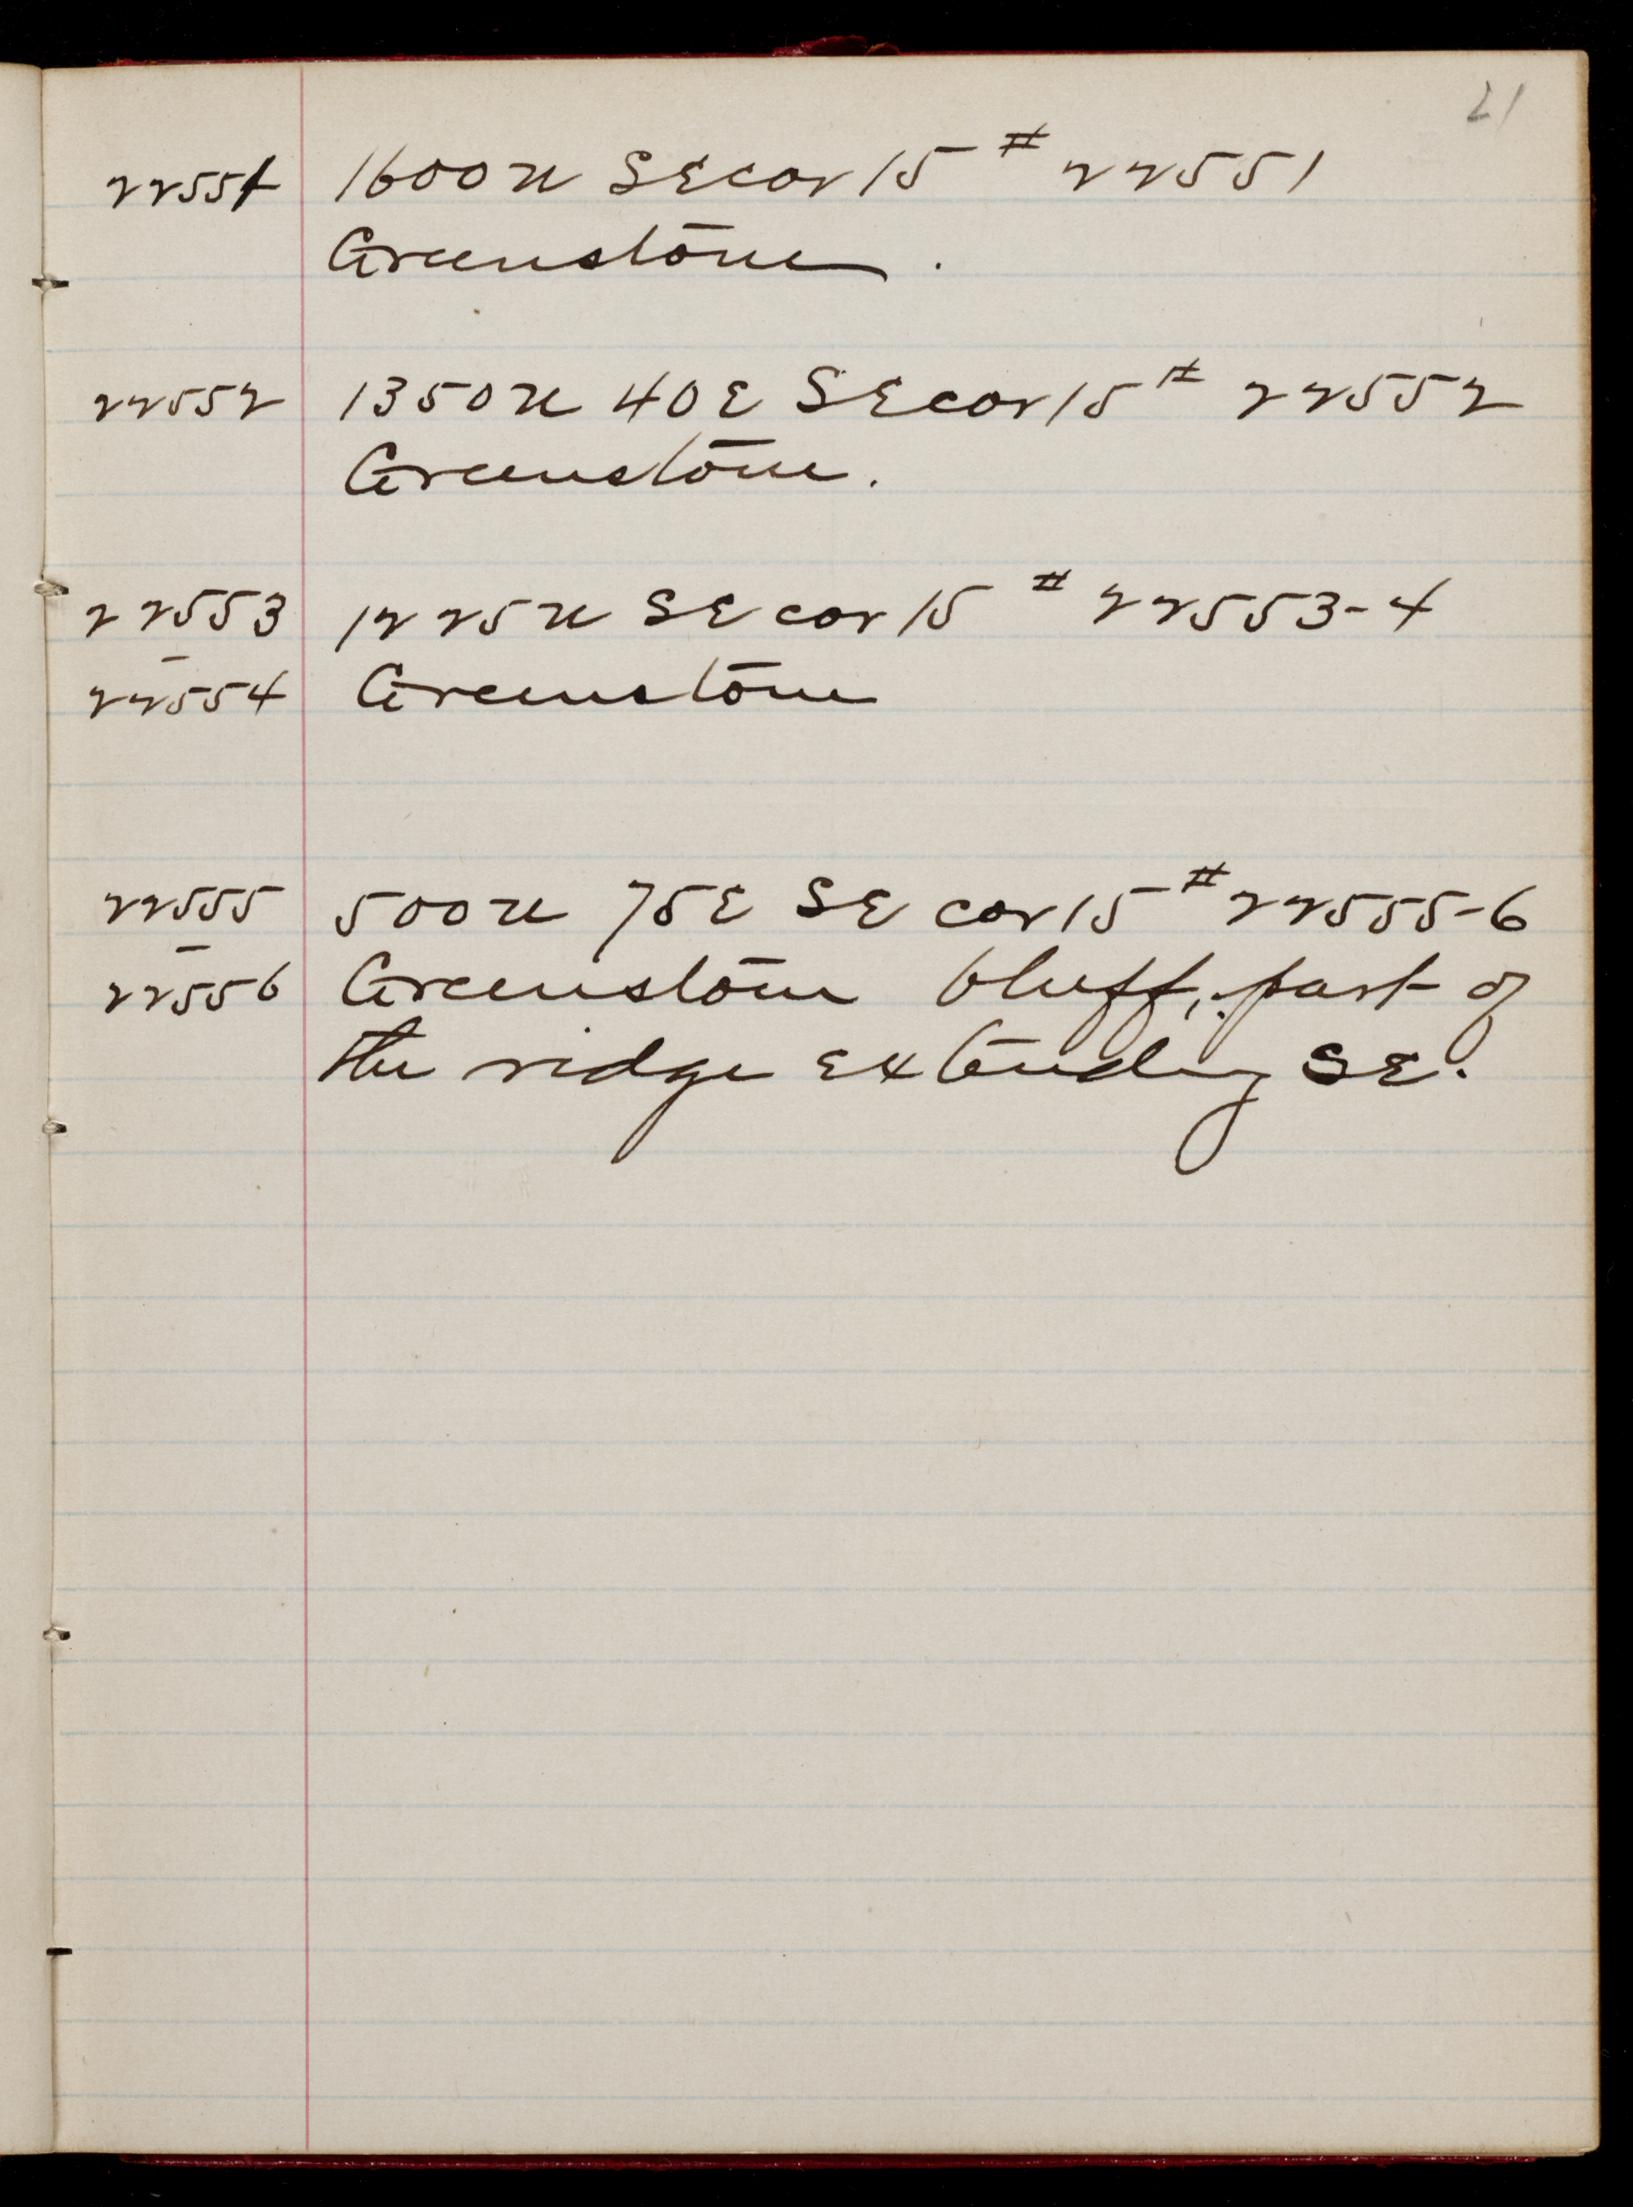 21
22551 1600 N SE cor 15 # 22551
Greenstone.
22552 1350 N 40 E SE cor 15 # 22552
Greenstone.
22553 1225 N SE cor 15 # 22553-4
–
22554 Greenstone
22555 500 N 75 E SE cor 15 # 22555-6
–
22556 Greenstone bluff, part of
the ridge extending SE.